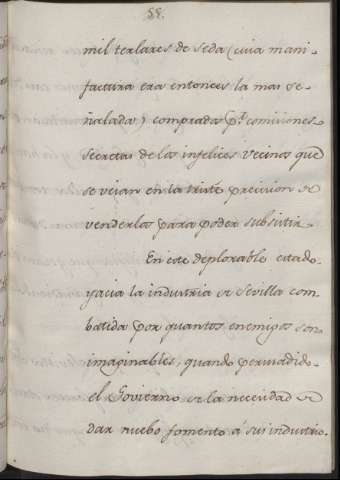 55.
mil telares de seda (cuia mani-
factura era entonces la mas se-
ñalada) comprada pr. comisiones
secretas de los infelices vecinos que
se veian en la triste precision de
venderlos para poder subsistir.
En este deplorable estado
yacia la industria de Sevilla com-
batida por quantos enemigos son
imaginables, quando persuadido
el Govierno de la necesidad de
dar nuebo fomento á su industria.